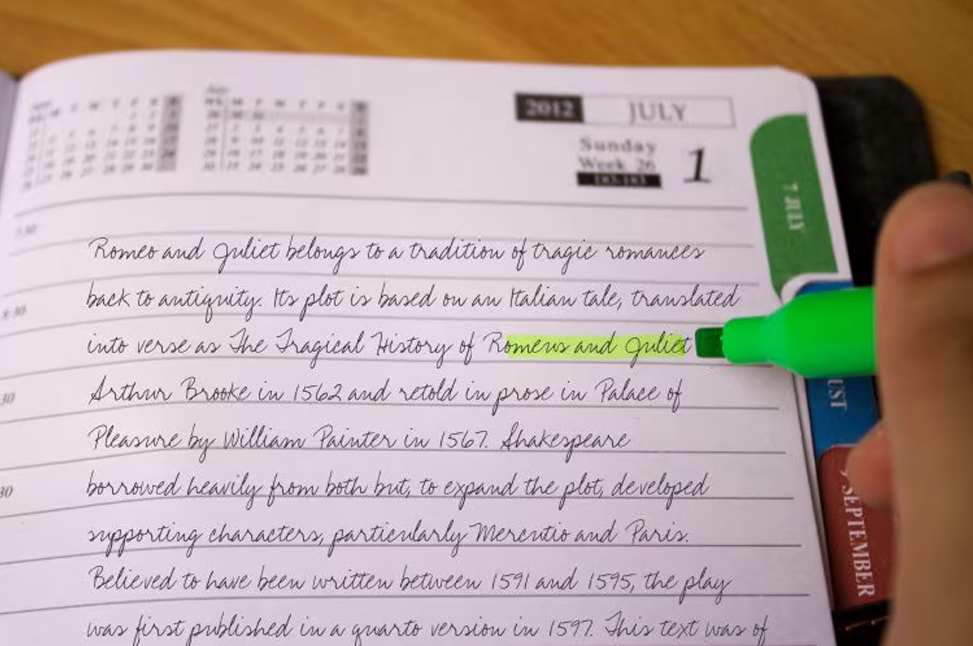 2012 JULY
Sunday
Week 26
1
7 JULY
Romeo and Juliet belongs to a tradition of tragic romances
back to antiquity. Its plot is based on an Italian tale, translated
8:30
into verse as The Tragical History of Romeus and Juliet
Arthur Brooke in 1562 and retold in prose in Palace of
30
UST
Pleasure by William Painter in 1567. Shakespeare
borrowed heavily from both but, to expand the plot, developed
30
SEPTEMBER
supporting characters, particularly Mercutio and Paris.
Believed to have been written between 1591 and 1595, the play
was first published in a quarto version in 1597. This text was of